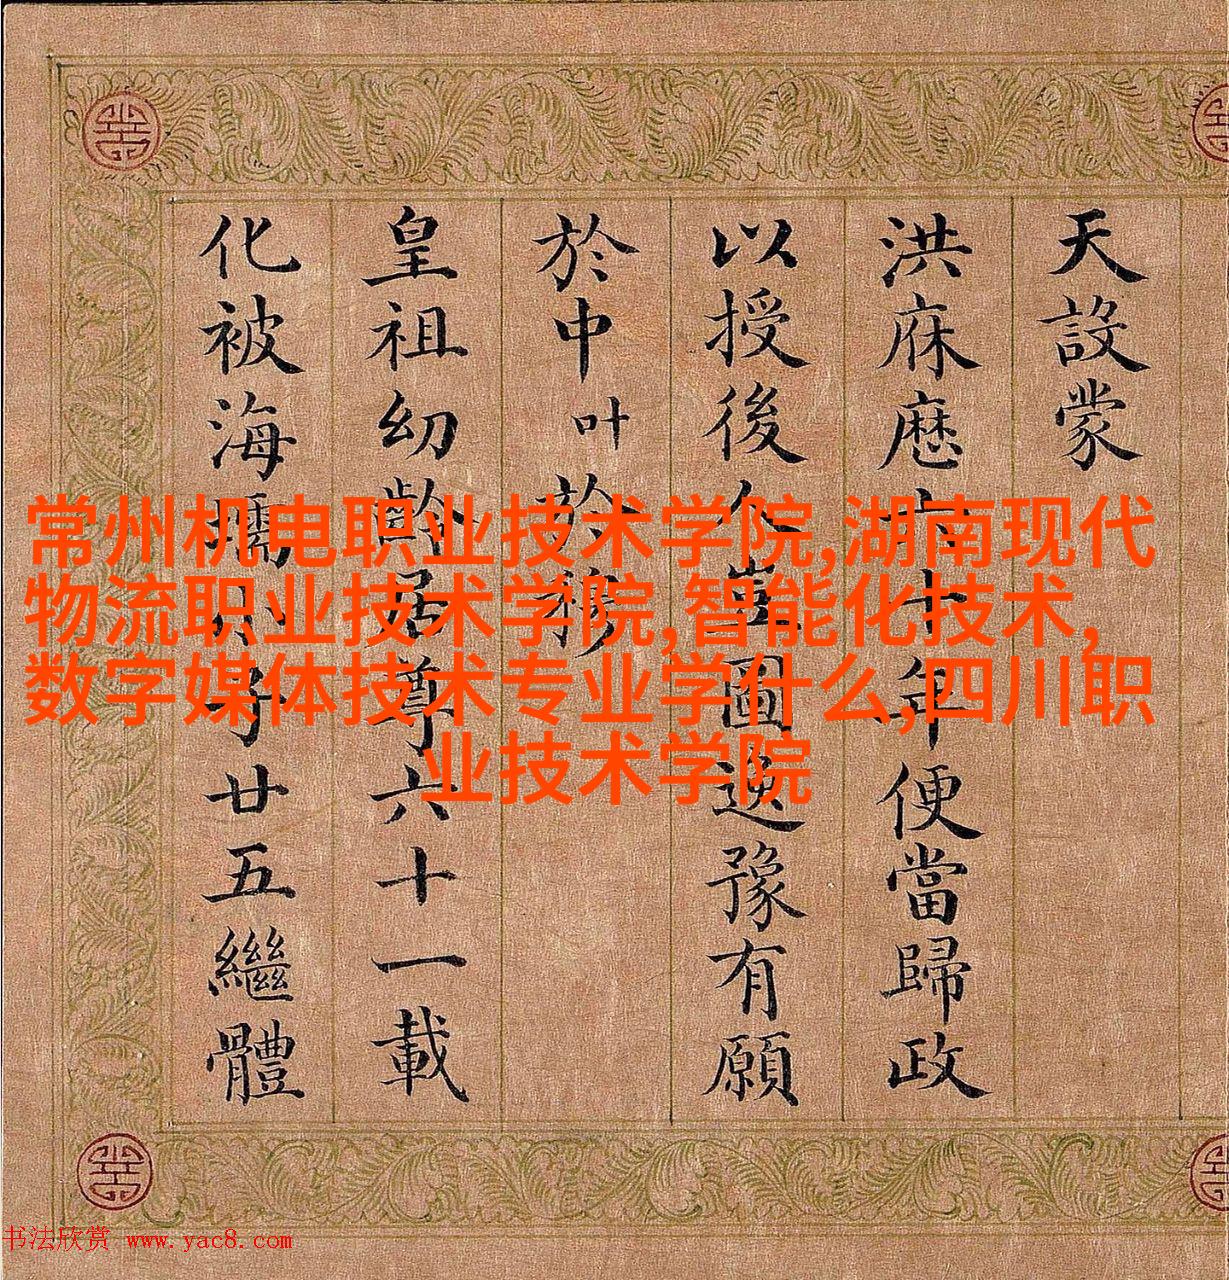 天設蒙
洪庥厯六十年便當歸政
以授後人豈圖逸豫有願
於中叶於穆
皇祖幼齡居尊六十一載
化被海壖小子廿五繼體
常州机电职业技术学院,湖南现代
物流职业技术学院,智能化技术,
数字媒体技术专业学什么,四川职
业技术学院
书法欣赏 www.yac8.com